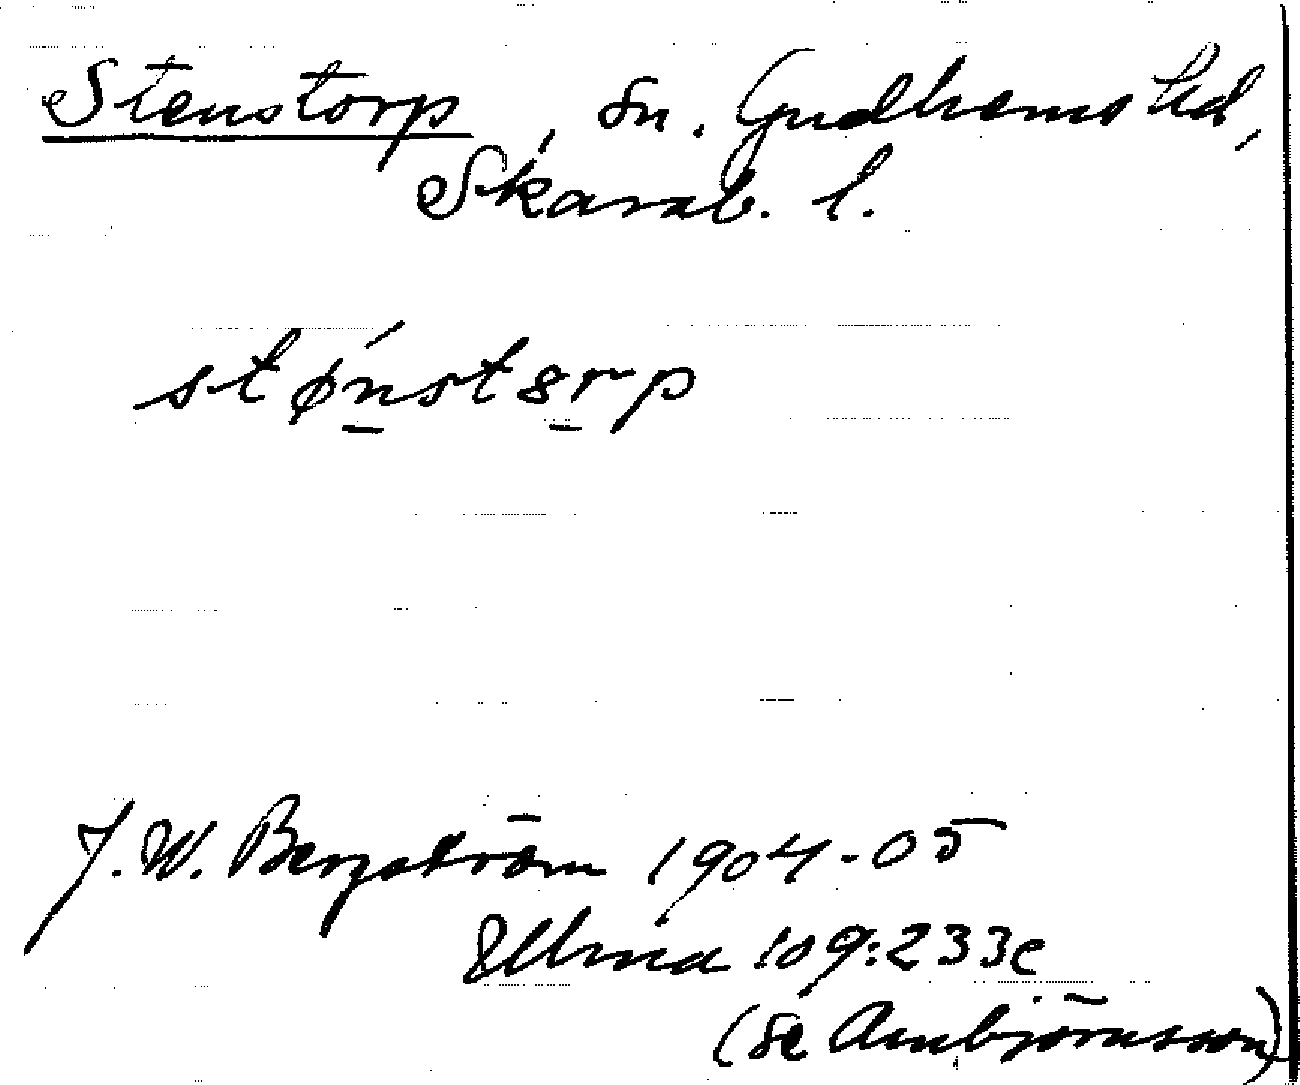 Stenstorp, sn. Gudhems hd,
Skarab. l.
stønst8rp
J. W. Bergström 1904-05
Ulma 109:233c
(se Arnbjörnsson)